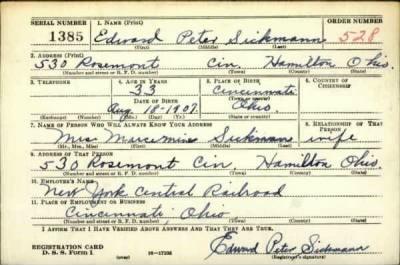 SERIAL NUMBER 1. NAME (Print) ORDER NUMBER
1385 Edward Peter Sickmann 528
(First) (Middle) (Last)
2. ADDRESS (Print)
530 Rosemont Cin. Hamilton Ohio.
(Number and street or R. F. D. number) (Town) (County) (State)
3. TELEPHONE 4. AGE IN YEARS 5. PLACE OF BIRTH 6. COUNTRY OF CITIZENSHIP
33 Cincinnati
DATE OF BIRTH (Town or county)
Aug. 18-1907. Ohio.
(Exchange) (Number) (Mo.) (Day) (Yr.) (State or country)
7. NAME OF PERSON WHO WILL ALWAYS KNOW YOUR ADDRESS 8. RELATIONSHIP OF THAT PERSON
Mrs. Sickman wife
(Mr., Mrs., Miss) (First) (Middle) (Last)
9. ADDRESS OF THAT PERSON
530 Rosemont Cin. Hamilton Ohio.
(Number and street or R. F. D. number) (Town) (County) (State)
10. EMPLOYER'S NAME
New York Central Railroad
11. PLACE OF EMPLOYMENT OR BUSINESS
Cincinnati, Ohio
(Number and street or R. F. D. number) (Town) (County) (State)
I AFFIRM THAT I HAVE VERIFIED ABOVE ANSWERS AND THAT THEY ARE TRUE.
REGISTRATION CARD Edward Peter Sickmann
D. S. S. Form 1 (over) 16-17105 (Registrant's signature)